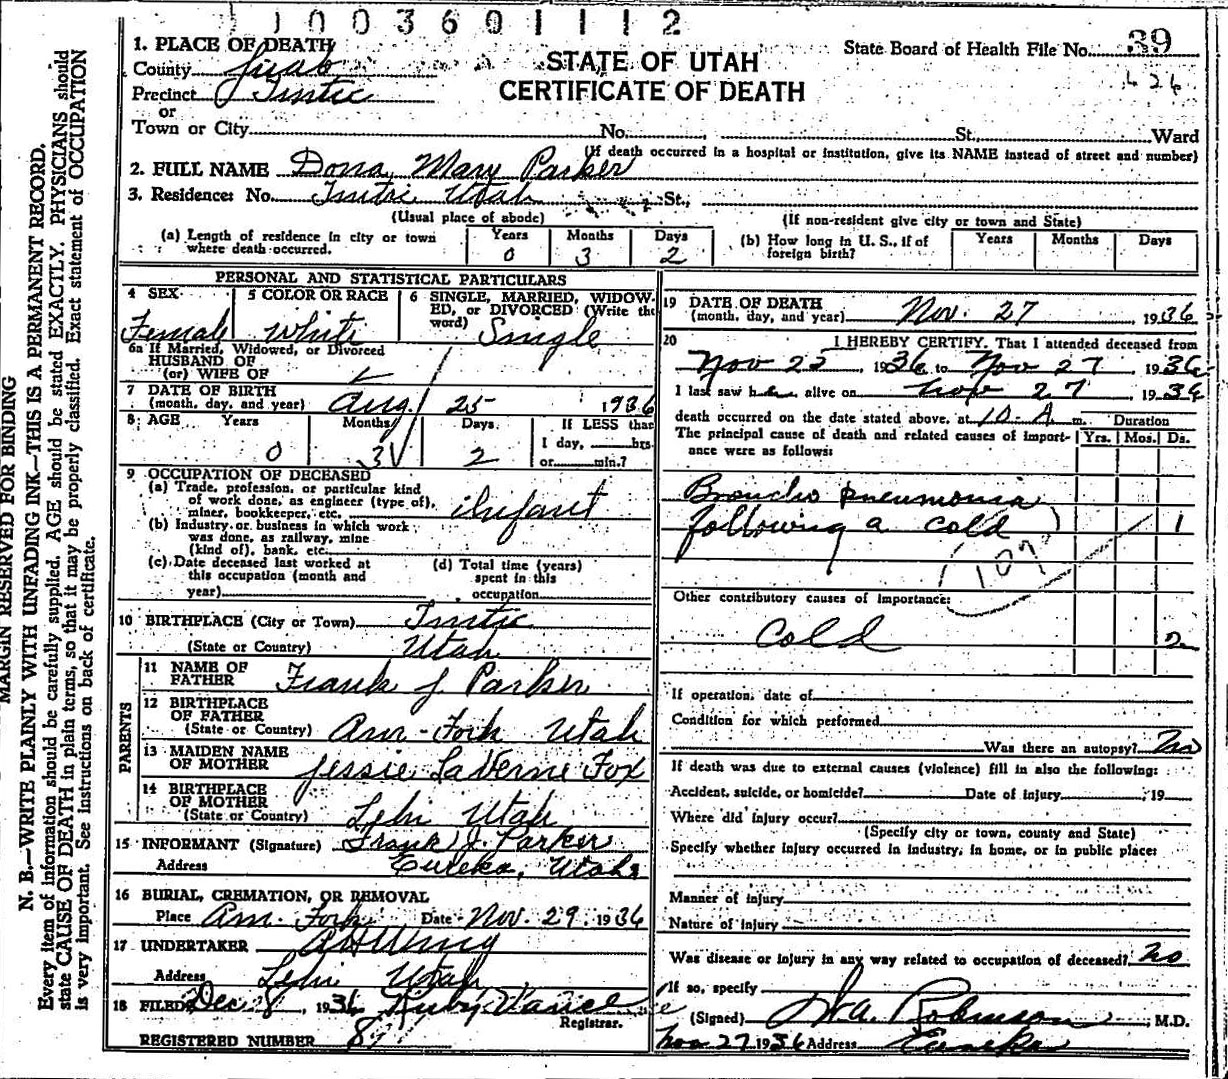 1003601112
1. PLACE OF DEATH
County Juab
Precinct Tintic
or
Town or City No. St. Ward
STATE OF UTAH
CERTIFICATE OF DEATH
State Board of Health File No. 39
426
(If death occurred in a hospital or institution, give its NAME instead of street and number)
2. FULL NAME Dona Mary Parker
3. Residence: No. Tintic Utah St.,
(Usual place of abode) (If non-resident give city or town and State)
(a) Length of residence in city or town where death occurred. Years 0 Months 3 Days 2
(b) How long in U. S., if of foreign birth? Years Months Days
PERSONAL AND STATISTICAL PARTICULARS
4 SEX Female
5 COLOR OR RACE White
6 SINGLE, MARRIED, WIDOWED, or DIVORCED (Write the word) Single
6a If Married, Widowed, or Divorced
HUSBAND OF
(or) WIFE OF
7 DATE OF BIRTH
(month, day, and year) Aug. 25 1936
8 AGE Years 0 Months 3 Days 2 If LESS than
1 day, hrs.
or min.?
9 OCCUPATION OF DECEASED
(a) Trade, profession, or particular kind
of work done, as engineer (type of),
miner, bookkeeper, etc. infant
(b) Industry or business in which work
was done, as railway, mine
(kind of), bank, etc.
(c) Date deceased last worked at
this occupation (month and
year)
(d) Total time (years)
spent in this
occupation
10 BIRTHPLACE (City or Town) Tintic
(State or Country) Utah
PARENTS
11 NAME OF FATHER Frank J. Parker
12 BIRTHPLACE OF FATHER
(State or Country) Am-Fork Utah
13 MAIDEN NAME OF MOTHER Jessie LaVerne Fox
14 BIRTHPLACE OF MOTHER
(State or Country) Lehi Utah
15 INFORMANT (Signature) Frank J. Parker
Address Eureka, Utah
16 BURIAL, CREMATION, OR REMOVAL
Place Am. Fork Date Nov. 29 1936
17 UNDERTAKER
Address Lehi Utah
18 FILED Dec 8, 1936 Ruby Vance
Registrar.
REGISTERED NUMBER 87
19 DATE OF DEATH
(month, day, and year) Nov. 27, 1936
20 I HEREBY CERTIFY, That I attended deceased from
Nov 23, 1936 to Nov 27, 1936
I last saw her alive on Nov 27, 1936
death occurred on the date stated above, at 10 A m. Duration
The principal cause of death and related causes of importance were as follows: Yrs. Mos. Ds.
Broncho pneumonia
following a cold 1
107
Other contributory causes of importance:
Cold 2
If operation, date of
Condition for which performed
Was there an autopsy? No
If death was due to external causes (violence) fill in also the following:
Accident, suicide, or homicide? Date of injury , 19
Where did injury occur?
(Specify city or town, county and State)
Specify whether injury occurred in industry, in home, or in public place:
Manner of injury
Nature of injury
Was disease or injury in any way related to occupation of deceased? No
If so, specify
(Signed) Robinson, M.D.
Nov 27 1936 Address Eureka
MARGIN RESERVED FOR BINDING
N. B.—WRITE PLAINLY WITH UNFADING INK—THIS IS A PERMANENT RECORD.
Every item of information should be carefully supplied. AGE should be stated EXACTLY. PHYSICIANS should
state CAUSE OF DEATH in plain terms, so that it may be properly classified. Exact statement of OCCUPATION
is very important. See instructions on back of certificate.